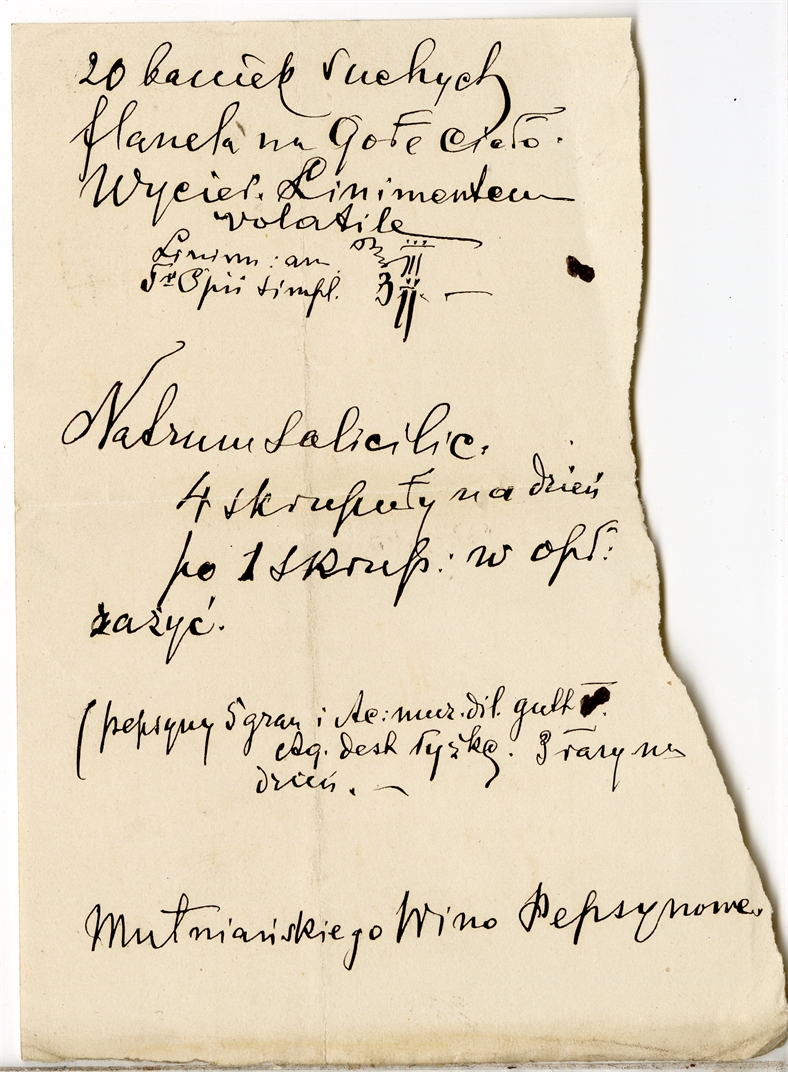 20 baniek suchych
flanela na gołe ciało.
Wycier. Linimentem
volatile
Linim: am. ℥iii
Trae Opii simpl. ʒii. —
Natrum Salicilic.
4 skrupuły na dzień
po 1 skrup: w opł:
zażyć.
(pepsyny 5 gran i Ac: mur. dil. gutt V.
Aq. dest łyżkę. 3 razy na
dzień. —
Mutniańskiego Wino Pepsynowe.